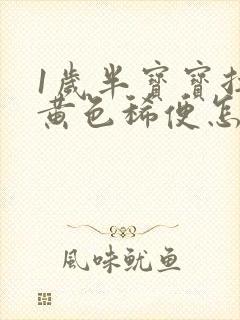 1歲半寶寶拉
黃色稀便怎
風味魷魚